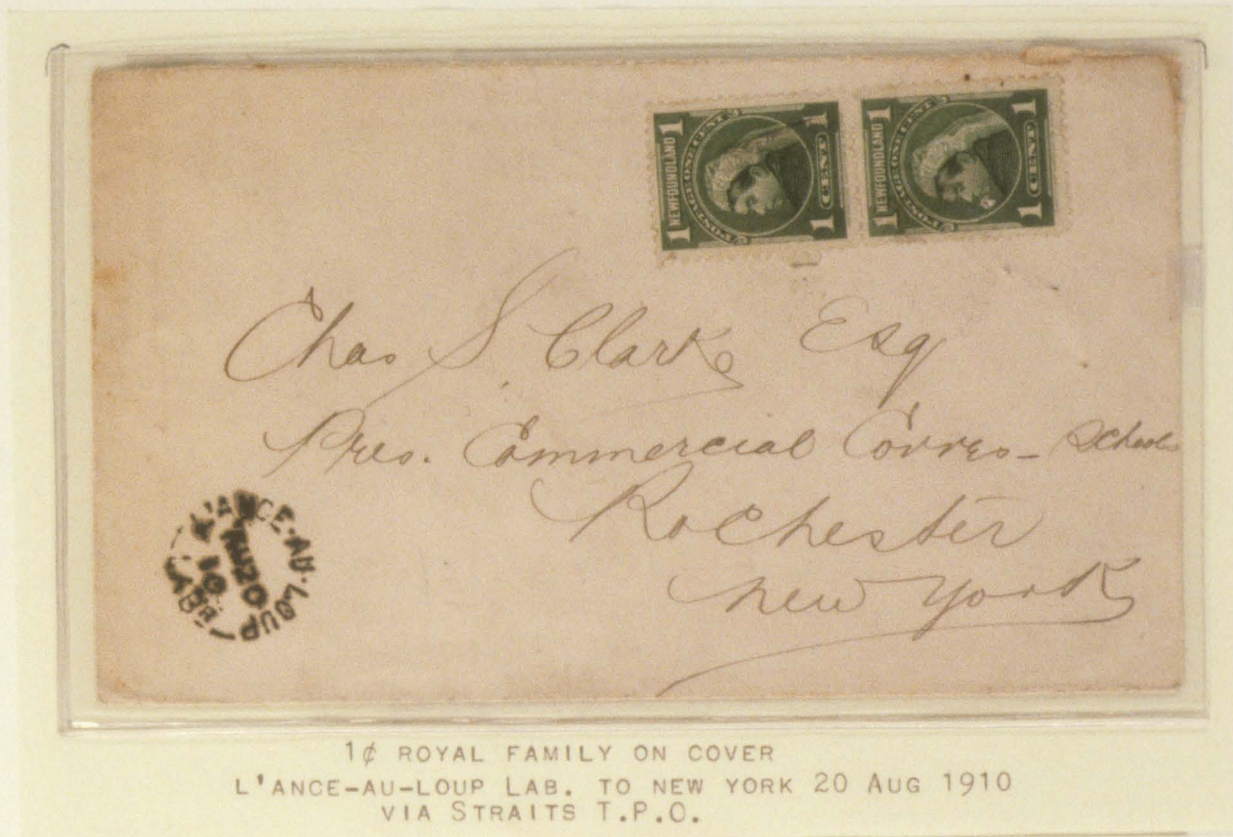 1 NEWFOUNDLAND 1
POSTAGE ONE CENT
1 CENT 1
1 NEWFOUNDLAND 1
POSTAGE ONE CENT
1 CENT 1
Chas S. Clark Esq
Pres. Commercial Corres- Schools
Rochester
New York
L'ANCE-AU-LOUP
AU 20
10
LAB
1¢ ROYAL FAMILY ON COVER
L'ANCE-AU-LOUP LAB. TO NEW YORK 20 AUG 1910
VIA STRAITS T.P.O.